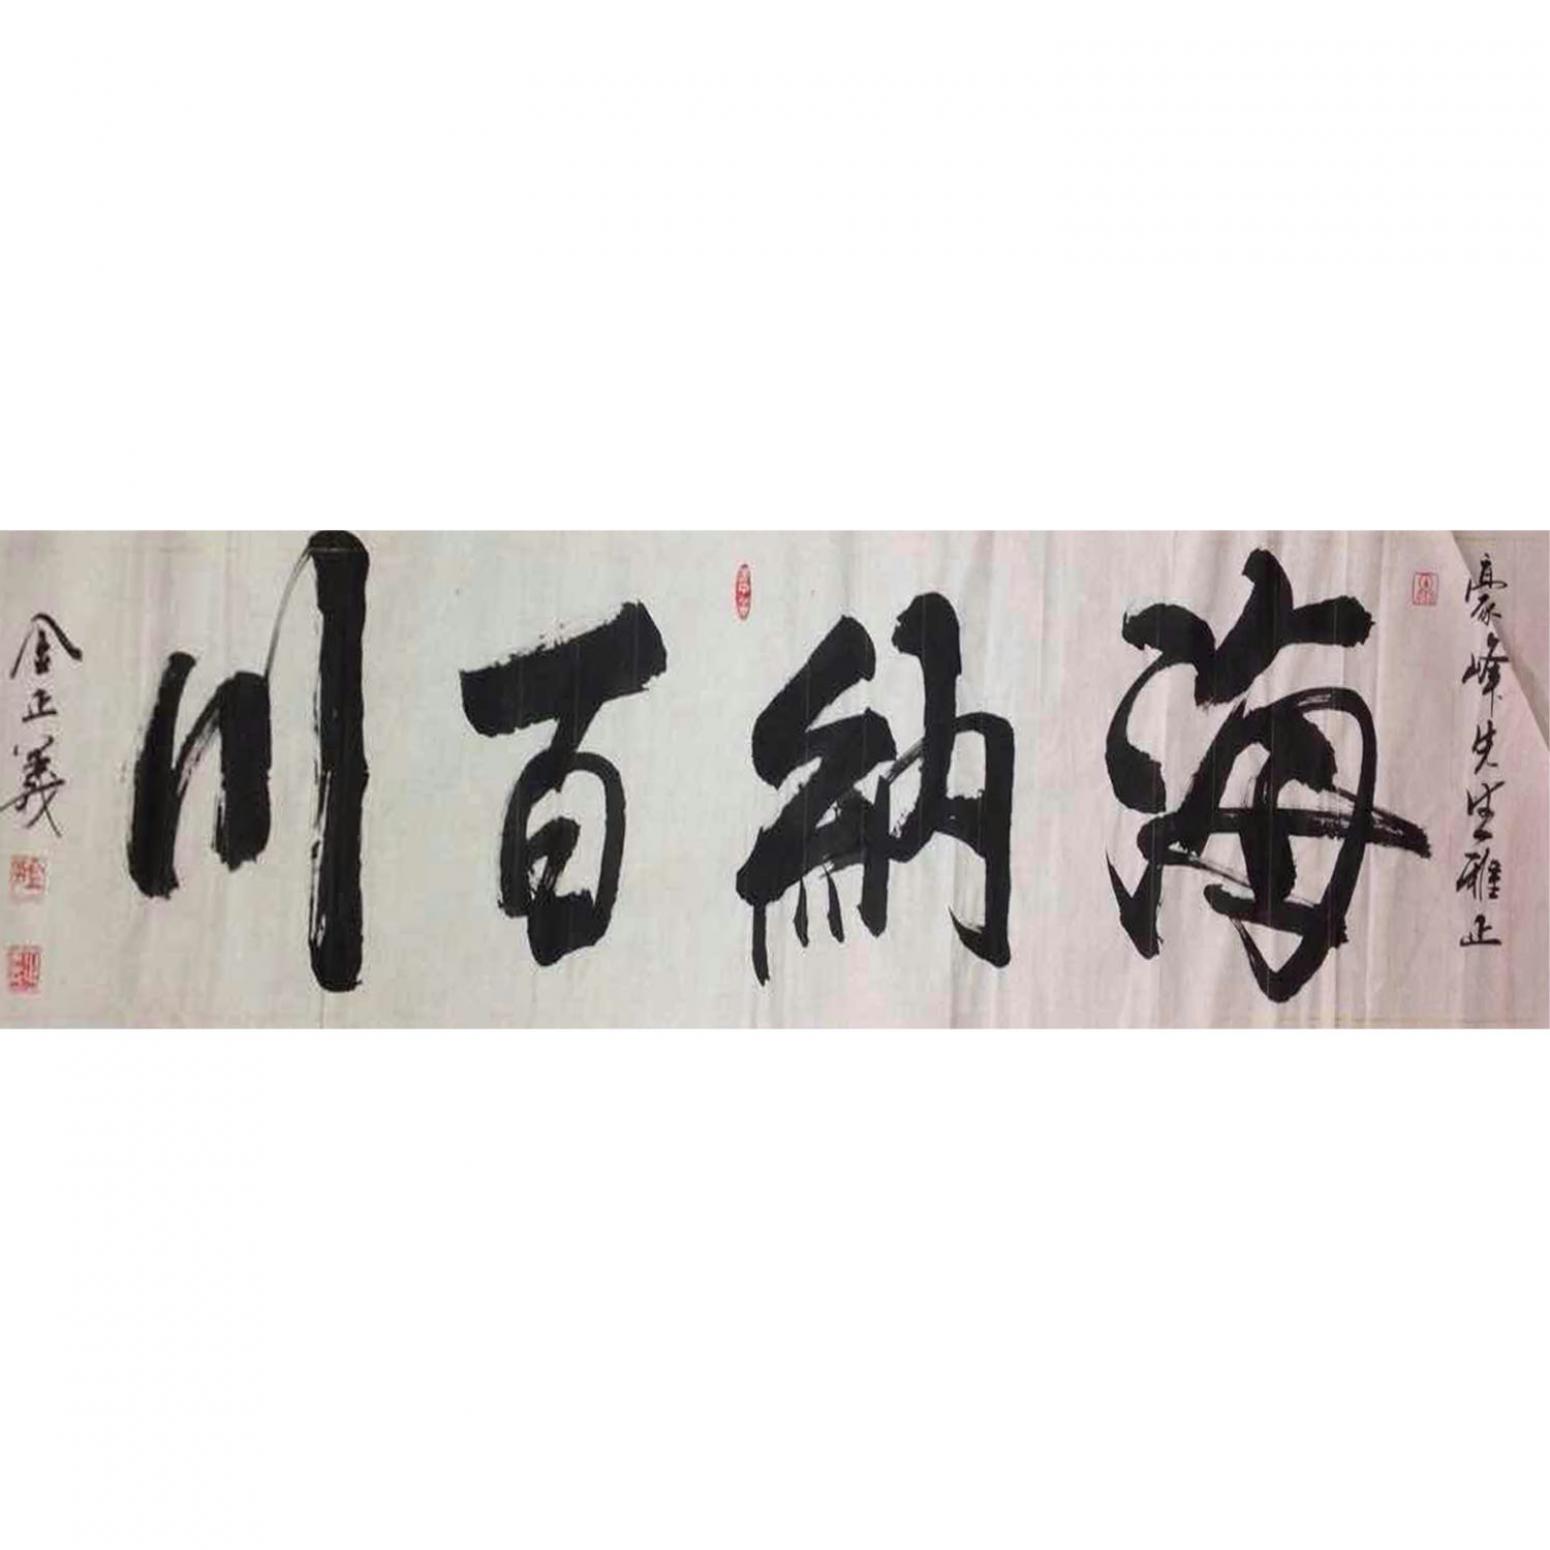 豪峰先生雅正
海納百川
金正義